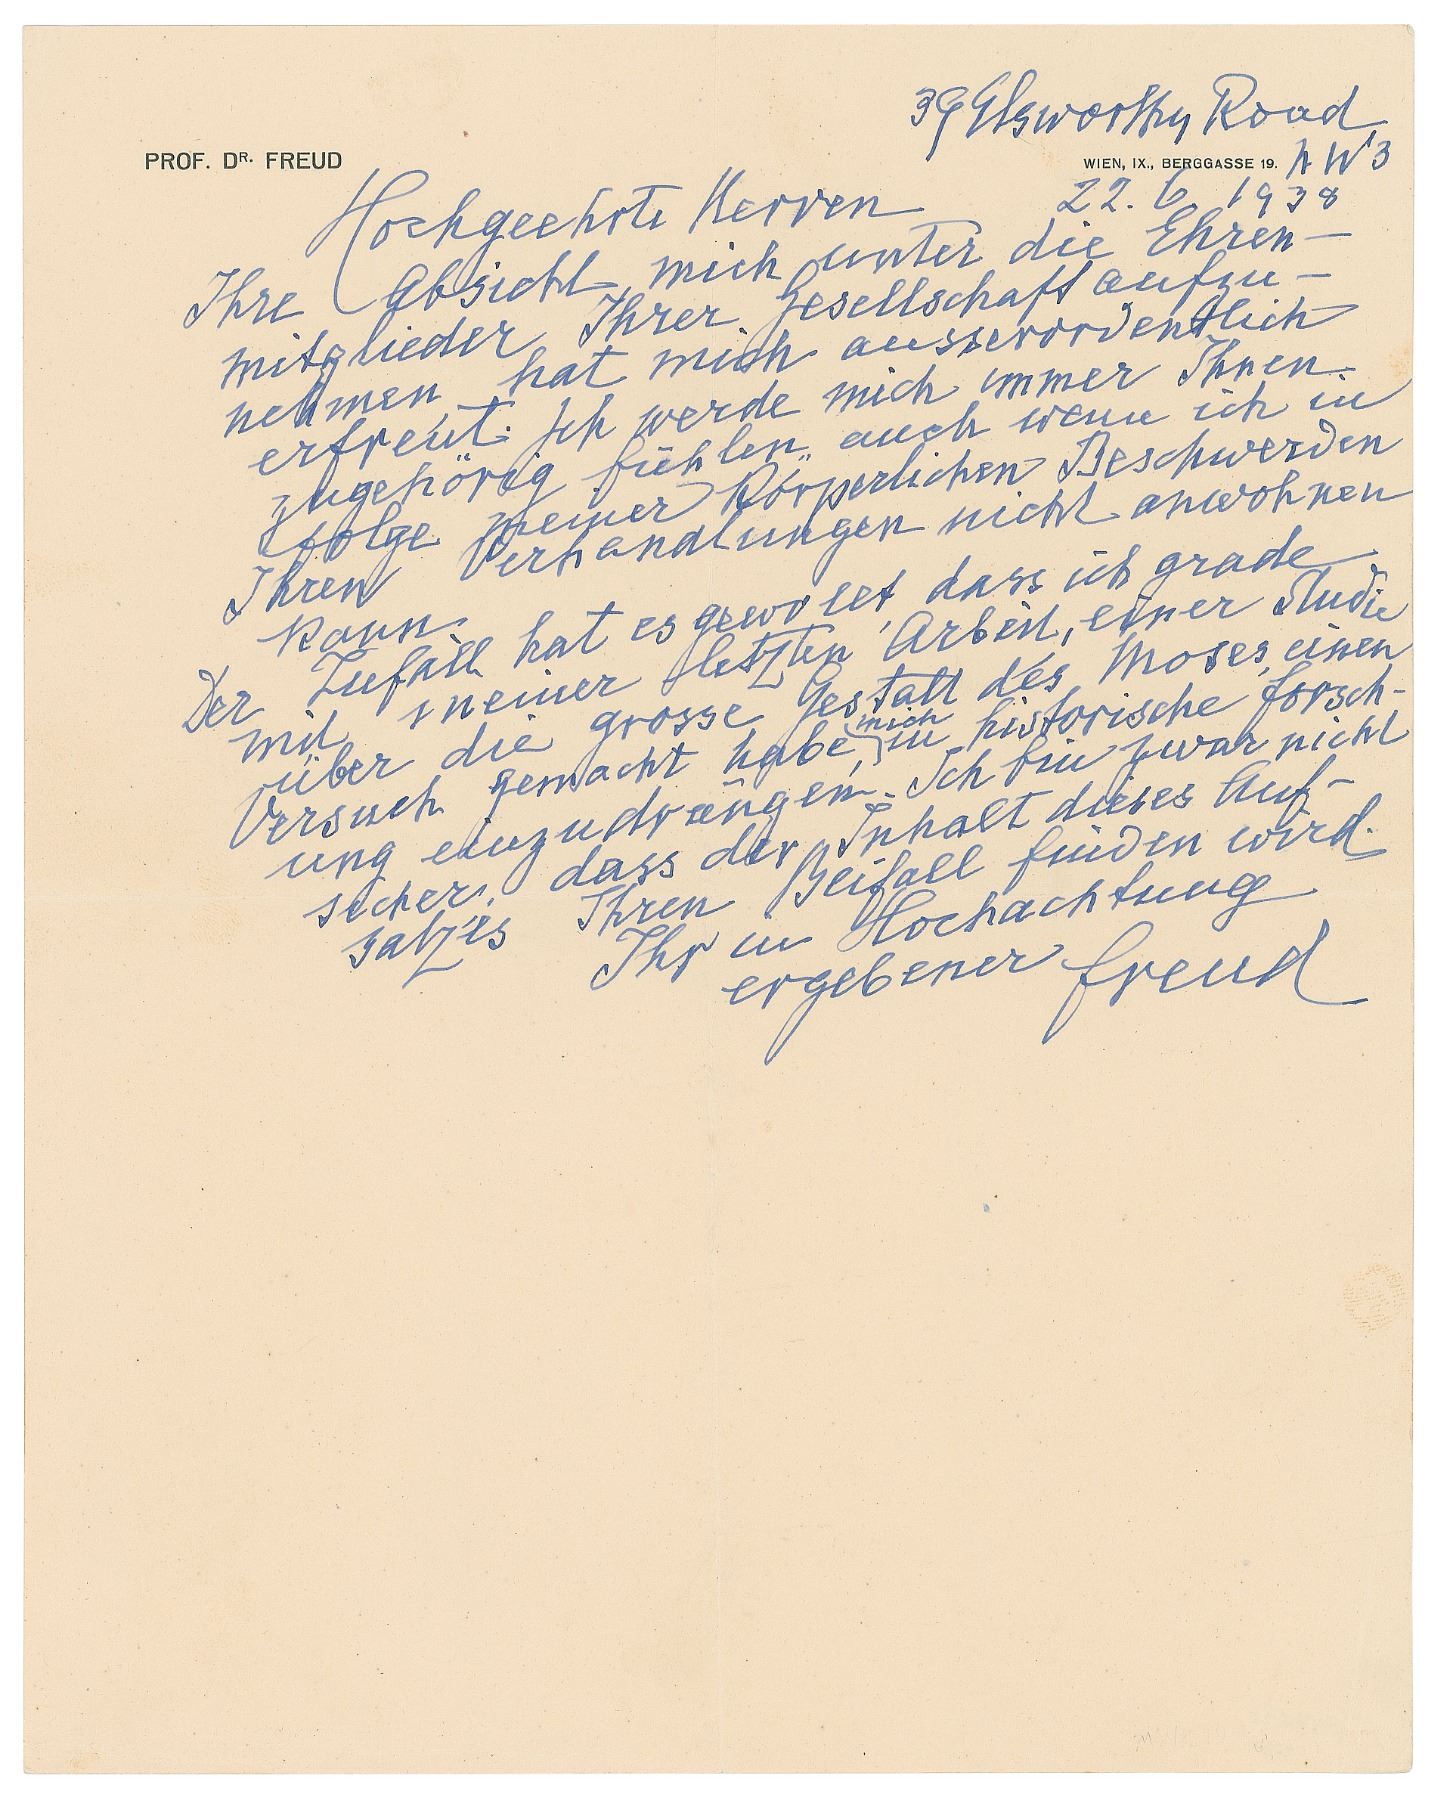 39 Elsworthy Road
PROF. DR. FREUD
WIEN, IX., BERGGASSE 19. N W 3
22. 6 1938
Hochgeehrte Herren
Ihre Absicht, mich unter die Ehren-
mitglieder Ihrer Gesellschaft aufzu-
nehmen, hat mich ausserordentlich
erfreut. Ich werde mich immer Ihnen
zugehörig fühlen, auch wenn ich in
folge meiner Körperlichen Beschwerden
Ihren Verhandlungen nicht anwohnen
kann.
Der Zufall hat es gewollt dass ich grade
mit meiner letzten Arbeit, einer Studie
über die grosse Gestalt des Moses, einen
Versuch gemacht habe, mich in historische Forsch-
ung einzudrängen. Ich bin zwar nicht
sicher, dass der Inhalt dieses Auf-
satzes Ihren Beifall finden wird.
Ihr in Hochachtung
ergebener Freud